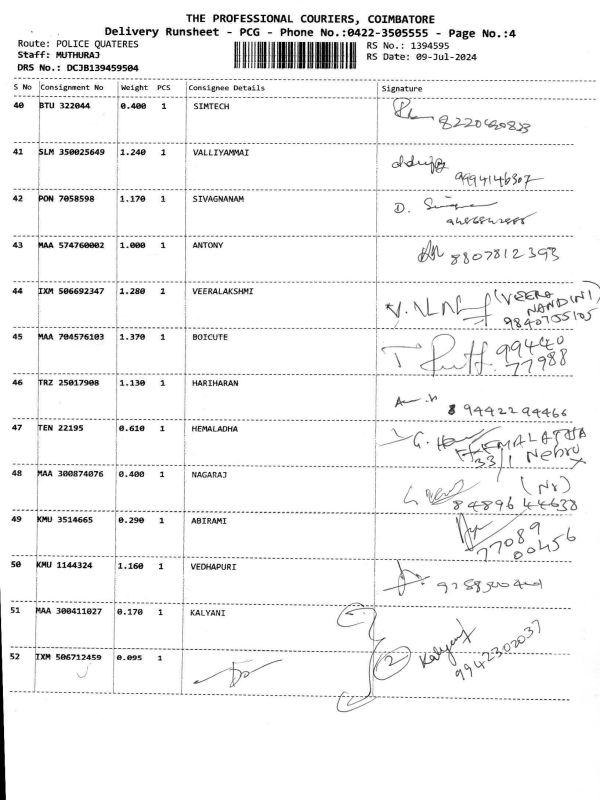 THE PROFESSIONAL COURIERS, COIMBATORE
Delivery Runsheet - PCG - Phone No.:0422-3505555 - Page No.:4
Route: POLICE QUATERES RS No.: 1394595
Staff: MUTHURAJ RS Date: 09-Jul-2024
DRS No.: DCJB139459504
S No Consignment No Weight PCS Consignee Details Signature
40 BTU 322044 0.400 1 SIMTECH
41 SLM 350025649 1.240 1 VALLIYAMMAI
9994146307
42 PON 7058598 1.170 1 SIVAGNANAM D.
43 MAA 574760002 1.000 1 ANTONY
8807812393
44 IXM 506692347 1.280 1 VEERALAKSHMI
(VEERA
NANDINI)
9840755105
45 MAA 704576103 1.370 1 BOICUTE
99440
77988
46 TRZ 25017908 1.130 1 HARIHARAN
9442294466
47 TEN 22195 0.610 1 HEMALADHA
G. HEMALATHA
33/1 Nehru
48 MAA 300874076 0.400 1 NAGARAJ
(Nr)
84896 44638
49 KMU 3514665 0.290 1 ABIRAMI
77089
00456
50 KMU 1144324 1.160 1 VEDHAPURI
51 MAA 300411027 0.170 1 KALYANI
2 Kalyani
9942302037
52 IXM 506712459 0.095 1